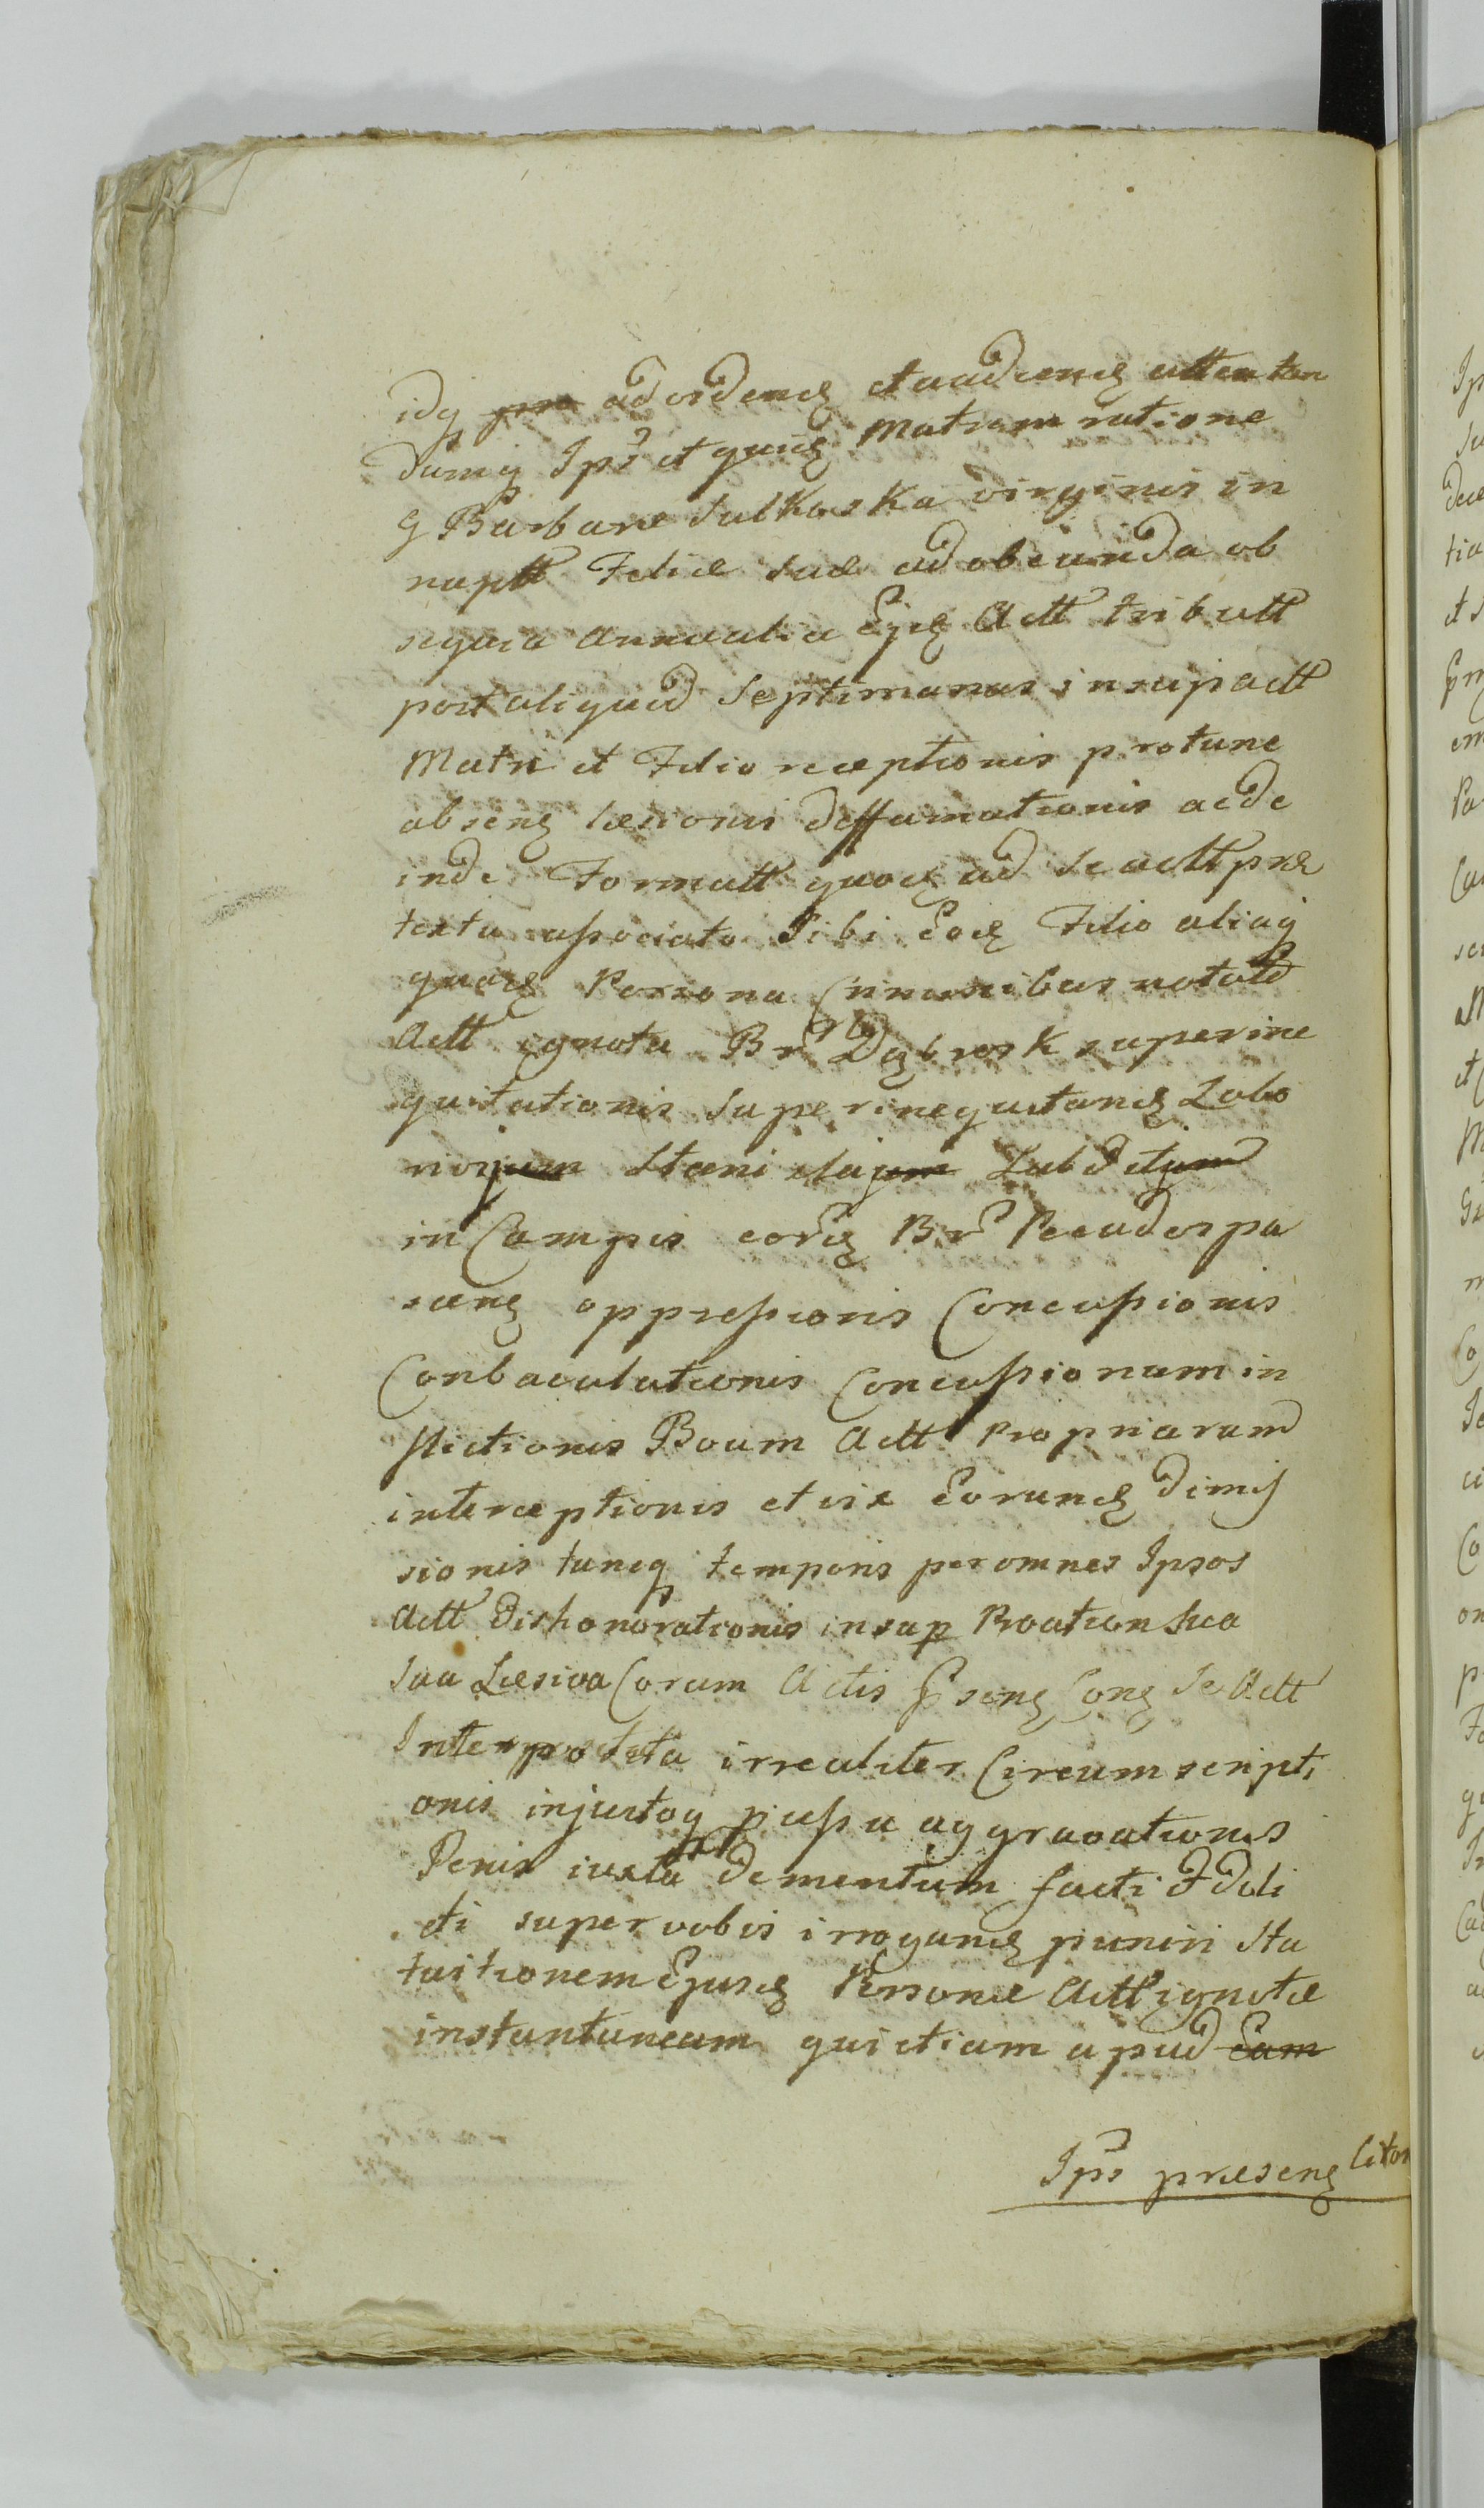 idq pro ad vidend et audiend atten tan
dumq Ips et quid Matrem ratione
G Barbare Sulkoska virginis in
nuptt Filiæ suæ ad obeunda ob
sequia annualia Ejd Actt tributt
post aliquid Septimanas insup actt
Matri et Filio receptionis protunc
absens læsionis deffamationis acde
inde Formatt quod ad se actt præ
textu associato sibi Eod Filio aliaq
quad Persona Criminibus notatt
Actt ignota Br Dąbrosk superine
quitationis superinequitand Labo
riorum Staeni etajum Subditum
in Campis eord Br Pecudes pa
scend oppressionis Concussionis
Conbaculationis Concussionum in
flictionis Boum Actt Propriarum
interceptionis et vix Eorund dimis
sionis tuncq temporis per omnes Ipsos
Actt Dishonorationis insup
sua Læsiva Coram Actis Præsend Cond Se Actt
irrealiter Circumscripti
onis injustoq passu aggravationis
Penis iuxta dementum facti & deli
cti super vobis irrogand puniri Sta
tuitionem Ejusd Personæ Actt ignotæ
instantaneam quictiam apud Eam
Ips præsend Citos